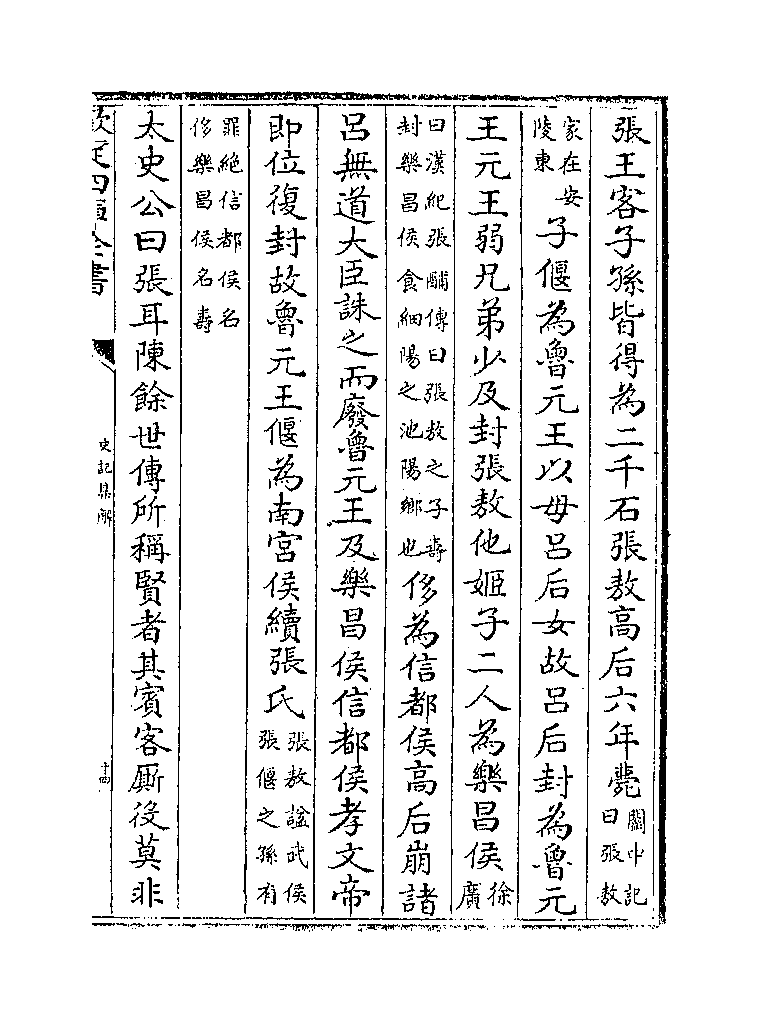 張王客子孫皆得為二千石張敖高后六年薨關中記曰張敖
家在安陵東子偃為魯元王以母呂后女故呂后封為魯元
王元王弱兄弟少及封張敖他姬子二人為樂昌侯徐廣
曰漢紀張酺傳曰張敖之子壽封樂昌侯食細陽之池陽鄉也侈為信都侯高后崩諸
呂無道大臣誅之而廢魯元王及樂昌侯信都侯孝文帝
即位復封故魯元王偃為南宮侯續張氏張敖諡武侯張偃之孫有
罪絕信都侯名侈樂昌侯名壽
太史公曰張耳陳餘世傳所稱賢者其賓客廝役莫非
欽定四庫全書
史記集解
十四